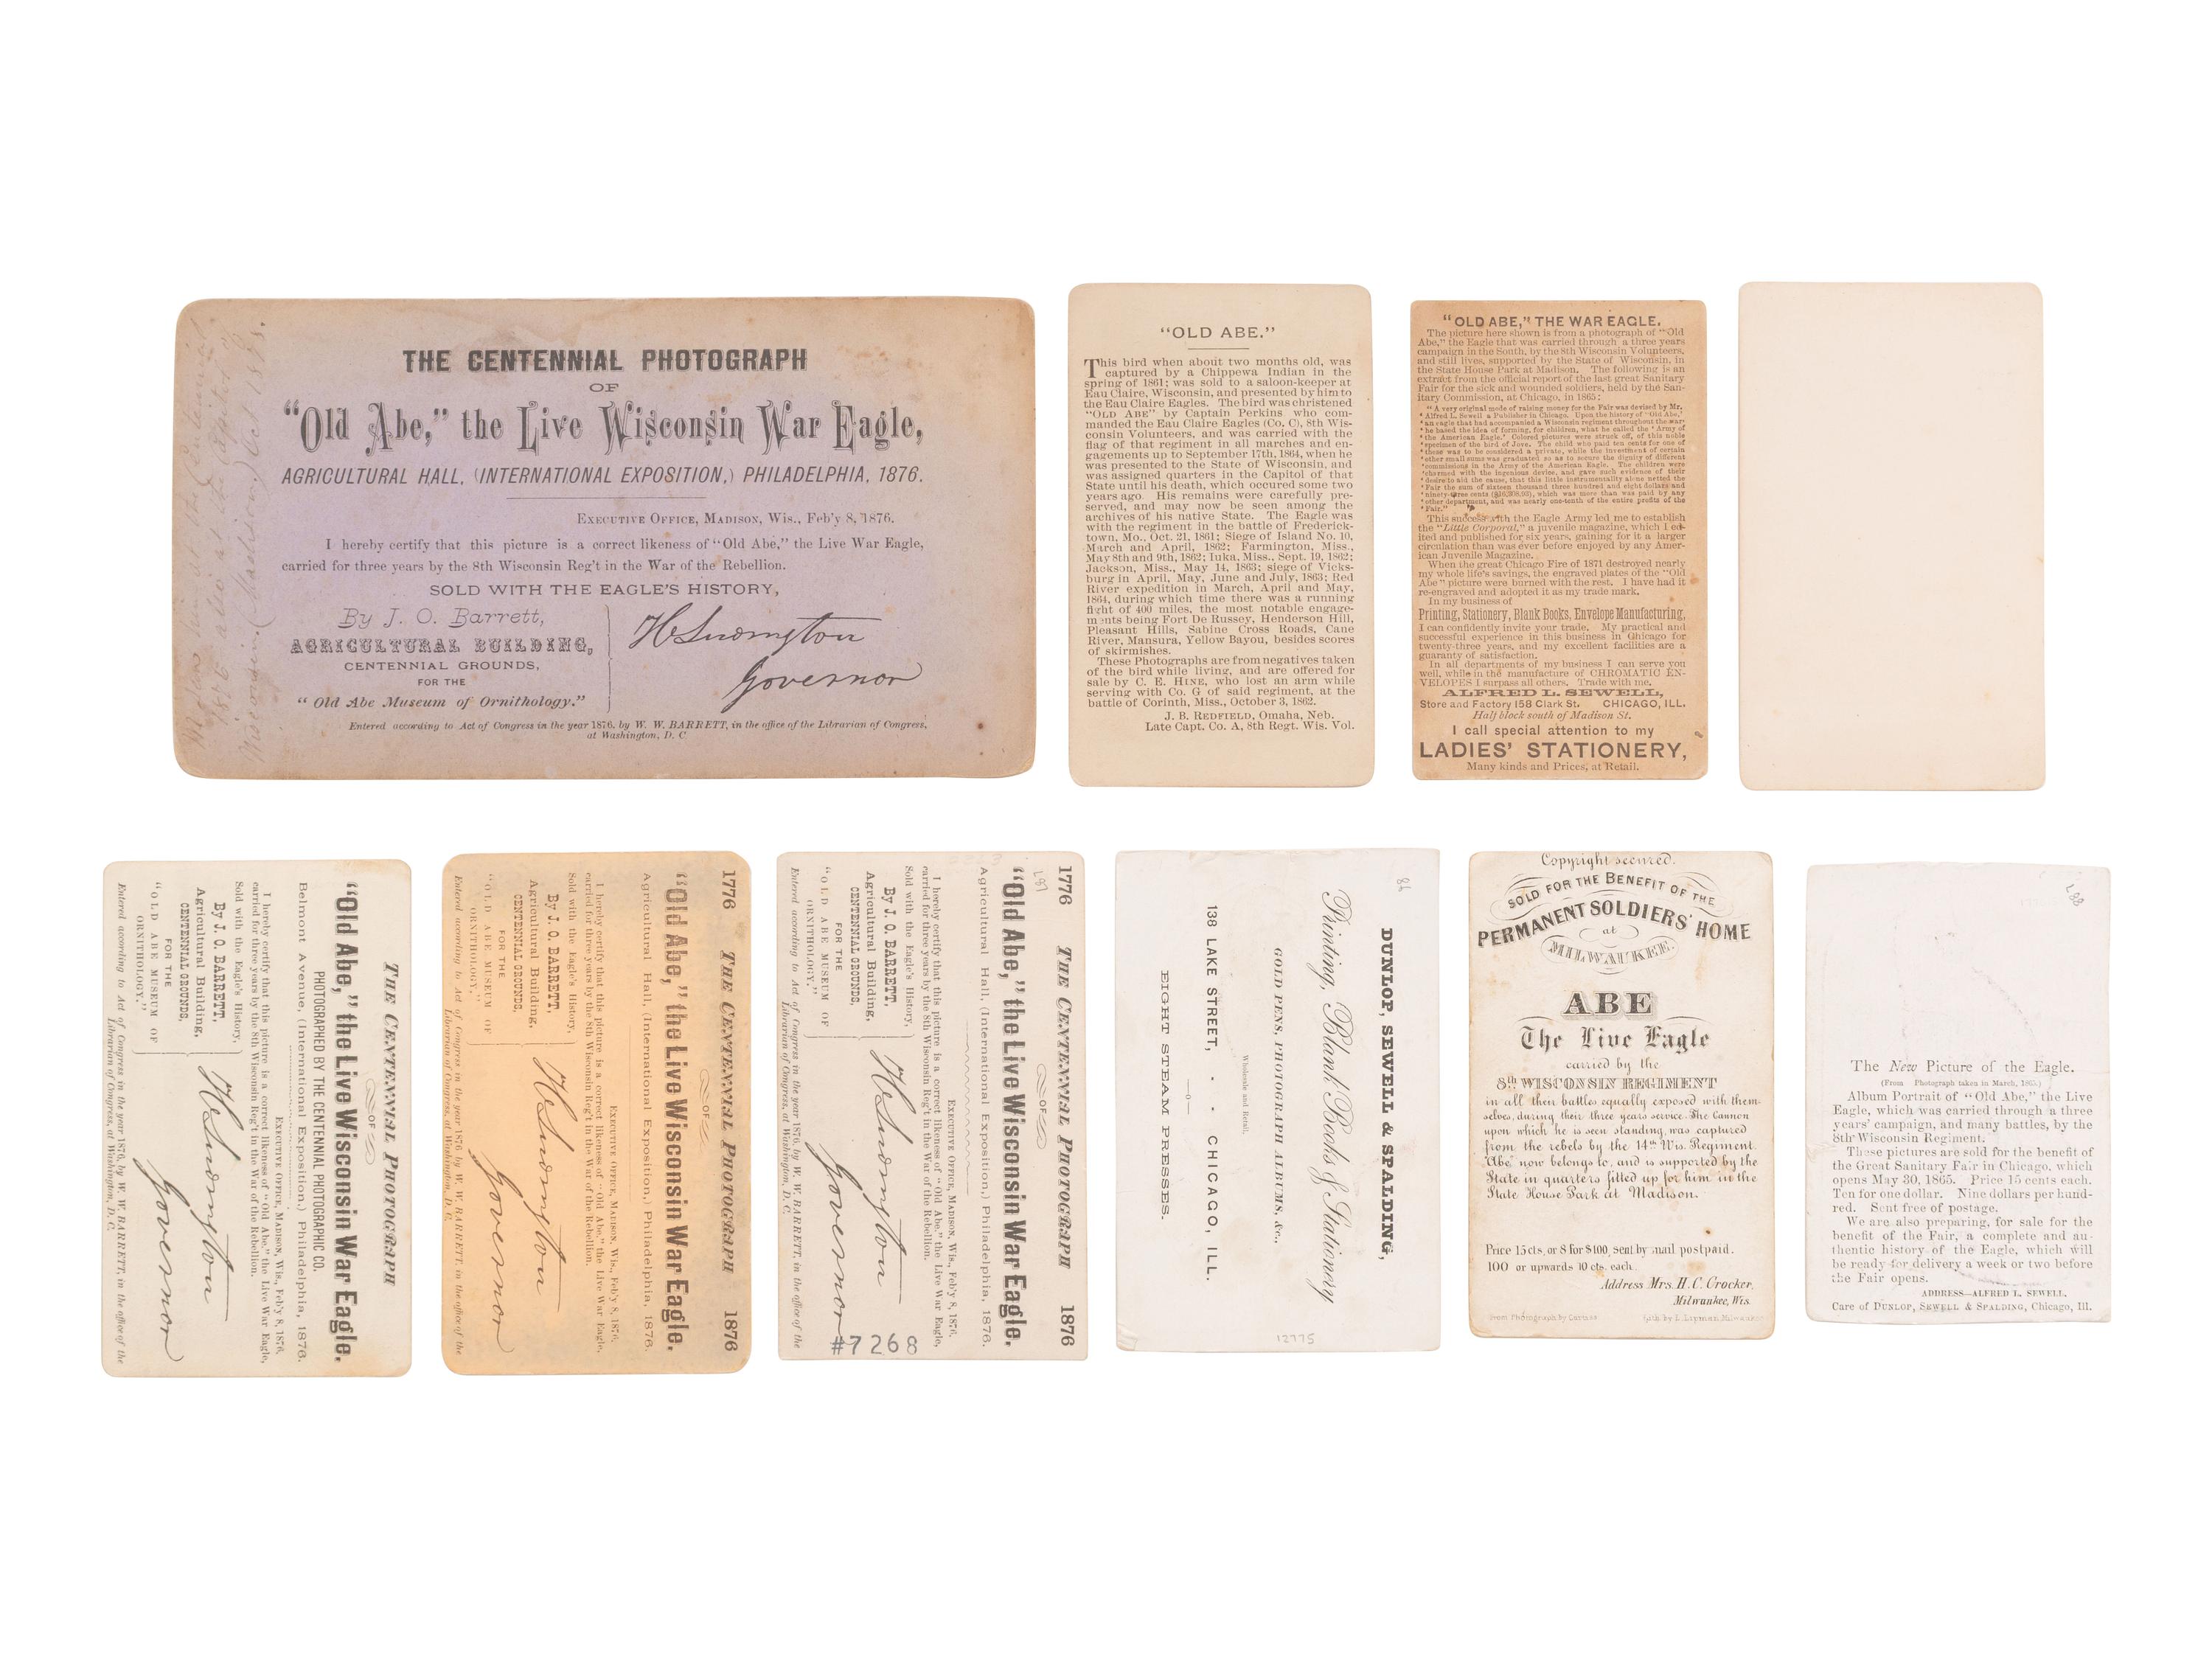 THE CENTENNIAL PHOTOGRAPH
OF
"Old Abe," the Live Wisconsin War Eagle,
AGRICULTURAL HALL, (INTERNATIONAL EXPOSITION,) PHILADELPHIA, 1876.
EXECUTIVE OFFICE, MADISON, WIS., Feb'y 8, 1876.
I hereby certify that this picture is a correct likeness of "Old Abe," the Live War Eagle,
carried for three years by the 8th Wisconsin Reg't in the War of the Rebellion.
SOLD WITH THE EAGLE'S HISTORY,
By J. O. Barrett,
AGRICULTURAL BUILDING,
CENTENNIAL GROUNDS,
FOR THE
"Old Abe Museum of Ornithology."
H Ludington
Governor
Entered according to Act of Congress in the year 1876, by W. W. BARRETT, in the office of the Librarian of Congress,
at Washington, D. C
"OLD ABE."
This bird when about two months old, was
captured by a Chippewa Indian in the
spring of 1861; was sold to a saloon-keeper at
Eau Claire, Wisconsin, and presented by him to
the Eau Claire Eagles. The bird was christened
"OLD ABE" by Captain Perkins who com-
manded the Eau Claire Eagles (Co. C), 8th Wis-
consin Volunteers, and was carried with the
flag of that regiment in all marches and en-
gagements up to September 17th, 1864, when he
was presented to the State of Wisconsin, and
was assigned quarters in the Capitol of that
State until his death, which occured some two
years ago. His remains were carefully pre-
served, and may now be seen among the
archives of his native State. The Eagle was
with the regiment in the battle of Frederick-
town, Mo., Oct. 21, 1861; Siege of Island No. 10,
March and April, 1862; Farmington, Miss.,
May 8th and 9th, 1862; Iuka, Miss., Sept. 19, 1862;
Jackson, Miss., May 14, 1863; siege of Vicks-
burg in April, May, June and July, 1863; Red
River expedition in March, April and May,
1864, during which time there was a running
fight of 400 miles, the most notable engage-
ments being Fort De Russey, Henderson Hill,
Pleasant Hills, Sabine Cross Roads, Cane
River, Mansura, Yellow Bayou, besides scores
of skirmishes.
These Photographs are from negatives taken
of the bird while living, and are offered for
sale by C. E. HINE, who lost an arm while
serving with Co. G of said regiment, at the
battle of Corinth, Miss., October 3, 1862.
J. B. REDFIELD, Omaha, Neb.
Late Capt. Co. A, 8th Regt. Wis. Vol.
"OLD ABE," THE WAR EAGLE.
The picture here shown is from a photograph of "Old
Abe," the Eagle that was carried through a three years
campaign in the South, by the 8th Wisconsin Volunteers,
and still lives, supported by the State of Wisconsin, in
the State House Park at Madison. The following is an
extract from the official report of the last great Sanitary
Fair for the sick and wounded soldiers, held by the San-
itary Commission, at Chicago, in 1865:
"A very original mode of raising money for the Fair was devised by Mr.
'Alfred L. Sewell a Publisher in Chicago. Upon the history of "Old Abe,"
'an eagle that had accompanied a Wisconsin regiment throughout the war
'he based the idea of forming, for children, what he called the 'Army of
'the American Eagle.' Colored pictures were struck off, of this noble
'specimen of the bird of Jove. The child who paid ten cents for one of
'these was to be considered a private, while the investment of certain
'other small sums was graduated so as to secure the dignity of different
'commissions in the Army of the American Eagle. The children were
'charmed with the ingenious device, and gave such evidence of their
'desire to aid the cause, that this little instrumentality alone netted the
'Fair the sum of sixteen thousand three hundred and eight dollars and
'ninety-three cents ($16,308.93), which was more than was paid by any
'other department, and was nearly one-tenth of the entire profits of the
'Fair."
This success with the Eagle Army led me to establish
the "Little Corporal," a juvenile magazine, which I ed-
ited and published for six years, gaining for it a larger
circulation than was ever before enjoyed by any Amer-
ican Juvenile Magazine.
When the great Chicago Fire of 1871 destroyed nearly
my whole life's savings, the engraved plates of the "Old
Abe" picture were burned with the rest. I have had it
re-engraved and adopted it as my trade mark.
In my business of
Printing, Stationery, Blank Books, Envelope Manufacturing,
I can confidently invite your trade. My practical and
successful experience in this business in Chicago for
twenty-three years, and my excellent facilities are a
guaranty of satisfaction.
In all departments of my business I can serve you
well, while in the manufacture of CHROMATIC EN-
VELOPES I surpass all others. Trade with me.
ALFRED L. SEWELL,
Store and Factory 158 Clark St. CHICAGO, ILL.
Half block south of Madison St.
I call special attention to my
LADIES' STATIONERY,
Many kinds and Prices, at Retail.
THE CENTENNIAL PHOTOGRAPH
OF
"Old Abe," the Live Wisconsin War Eagle.
PHOTOGRAPHED BY THE CENTENNIAL PHOTOGRAPHIC CO.
Belmont Avenue, (International Exposition,) Philadelphia, 1876.
EXECUTIVE OFFICE, MADISON, WIS., Feb'y 8, 1876.
I hereby certify that this picture is a correct likeness of "Old Abe," the Live War Eagle,
carried for three years by the 8th Wisconsin Reg't in the War of the Rebellion.
Sold with the Eagle's History,
By J. O. BARRETT,
Agricultural Building,
CENTENNIAL GROUNDS,
FOR THE
"OLD ABE MUSEUM OF
ORNITHOLOGY."
H Ludington
Governor
Entered according to Act of Congress in the year 1876, by W. W. BARRETT, in the office of the
Librarian of Congress, at Washington, D. C.
1776 THE CENTENNIAL PHOTOGRAPH 1876
OF
"Old Abe," the Live Wisconsin War Eagle.
Agricultural Hall, (International Exposition,) Philadelphia, 1876.
EXECUTIVE OFFICE, MADISON, WIS., Feb'y 8, 1876.
I hereby certify that this picture is a correct likeness of "Old Abe," the Live War Eagle,
carried for three years by the 8th Wisconsin Reg't in the War of the Rebellion.
Sold with the Eagle's History,
By J. O. BARRETT,
Agricultural Building,
CENTENNIAL GROUNDS,
FOR THE
"OLD ABE MUSEUM OF
ORNITHOLOGY."
H Ludington
Governor
Entered according to Act of Congress in the year 1876, by W. W. BARRETT, in the office of the
Librarian of Congress, at Washington, D. C.
1776 THE CENTENNIAL PHOTOGRAPH 1876
OF
187
"Old Abe," the Live Wisconsin War Eagle.
Agricultural Hall, (International Exposition,) Philadelphia, 1876.
EXECUTIVE OFFICE, MADISON, WIS., Feb'y 8, 1876.
I hereby certify that this picture is a correct likeness of "Old Abe," the Live War Eagle,
carried for three years by the 8th Wisconsin Reg't in the War of the Rebellion.
Sold with the Eagle's History,
By J. O. BARRETT,
Agricultural Building,
CENTENNIAL GROUNDS,
FOR THE
"OLD ABE MUSEUM OF
ORNITHOLOGY."
H Ludington
Governor
Entered according to Act of Congress in the year 1876, by W. W. BARRETT, in the office of the
Librarian of Congress, at Washington, D. C.
#7268
DUNLOP, SEWELL & SPALDING,
Printing, Blank Books & Stationery
GOLD PENS, PHOTOGRAPH ALBUMS, &c.,
Wholesale and Retail,
138 LAKE STREET, - - CHICAGO, ILL.
EIGHT STEAM PRESSES.
12775
Copyright secured.
SOLD FOR THE BENEFIT OF THE
PERMANENT SOLDIERS' HOME
at
MILWAUKEE.
ABE
The Live Eagle
carried by the
8th WISCONSIN REGIMENT
in all their battles equally exposed with them-
selves, during their three years service. The Cannon
upon which he is seen standing, was captured
from the rebels by the 14th Wis. Regiment.
"Abe" now belongs to, and is supported by the
State in quarters fitted up for him in the
State House Park at Madison.
Price 15 cts, or 8 for $1.00, sent by mail postpaid.
100 or upwards 10 cts. each.
Address Mrs. H. C. Crocker,
Milwaukee, Wis.
From Photograph by Curtiss
Lith. by L. Lipman, Milwaukee
188
The New Picture of the Eagle.
(From Photograph taken in March, 1865.)
Album Portrait of "Old Abe," the Live
Eagle, which was carried through a three
years' campaign, and many battles, by the
8th Wisconsin Regiment.
These pictures are sold for the benefit of
the Great Sanitary Fair in Chicago, which
opens May 30, 1865. Price 15 cents each.
Ten for one dollar. Nine dollars per hund-
red. Sent free of postage.
We are also preparing, for sale for the
benefit of the Fair, a complete and au-
thentic history of the Eagle, which will
be ready for delivery a week or two before
the Fair opens.
ADDRESS—ALFRED L. SEWELL,
Care of DUNLOP, SEWELL & SPALDING, Chicago, Ill.